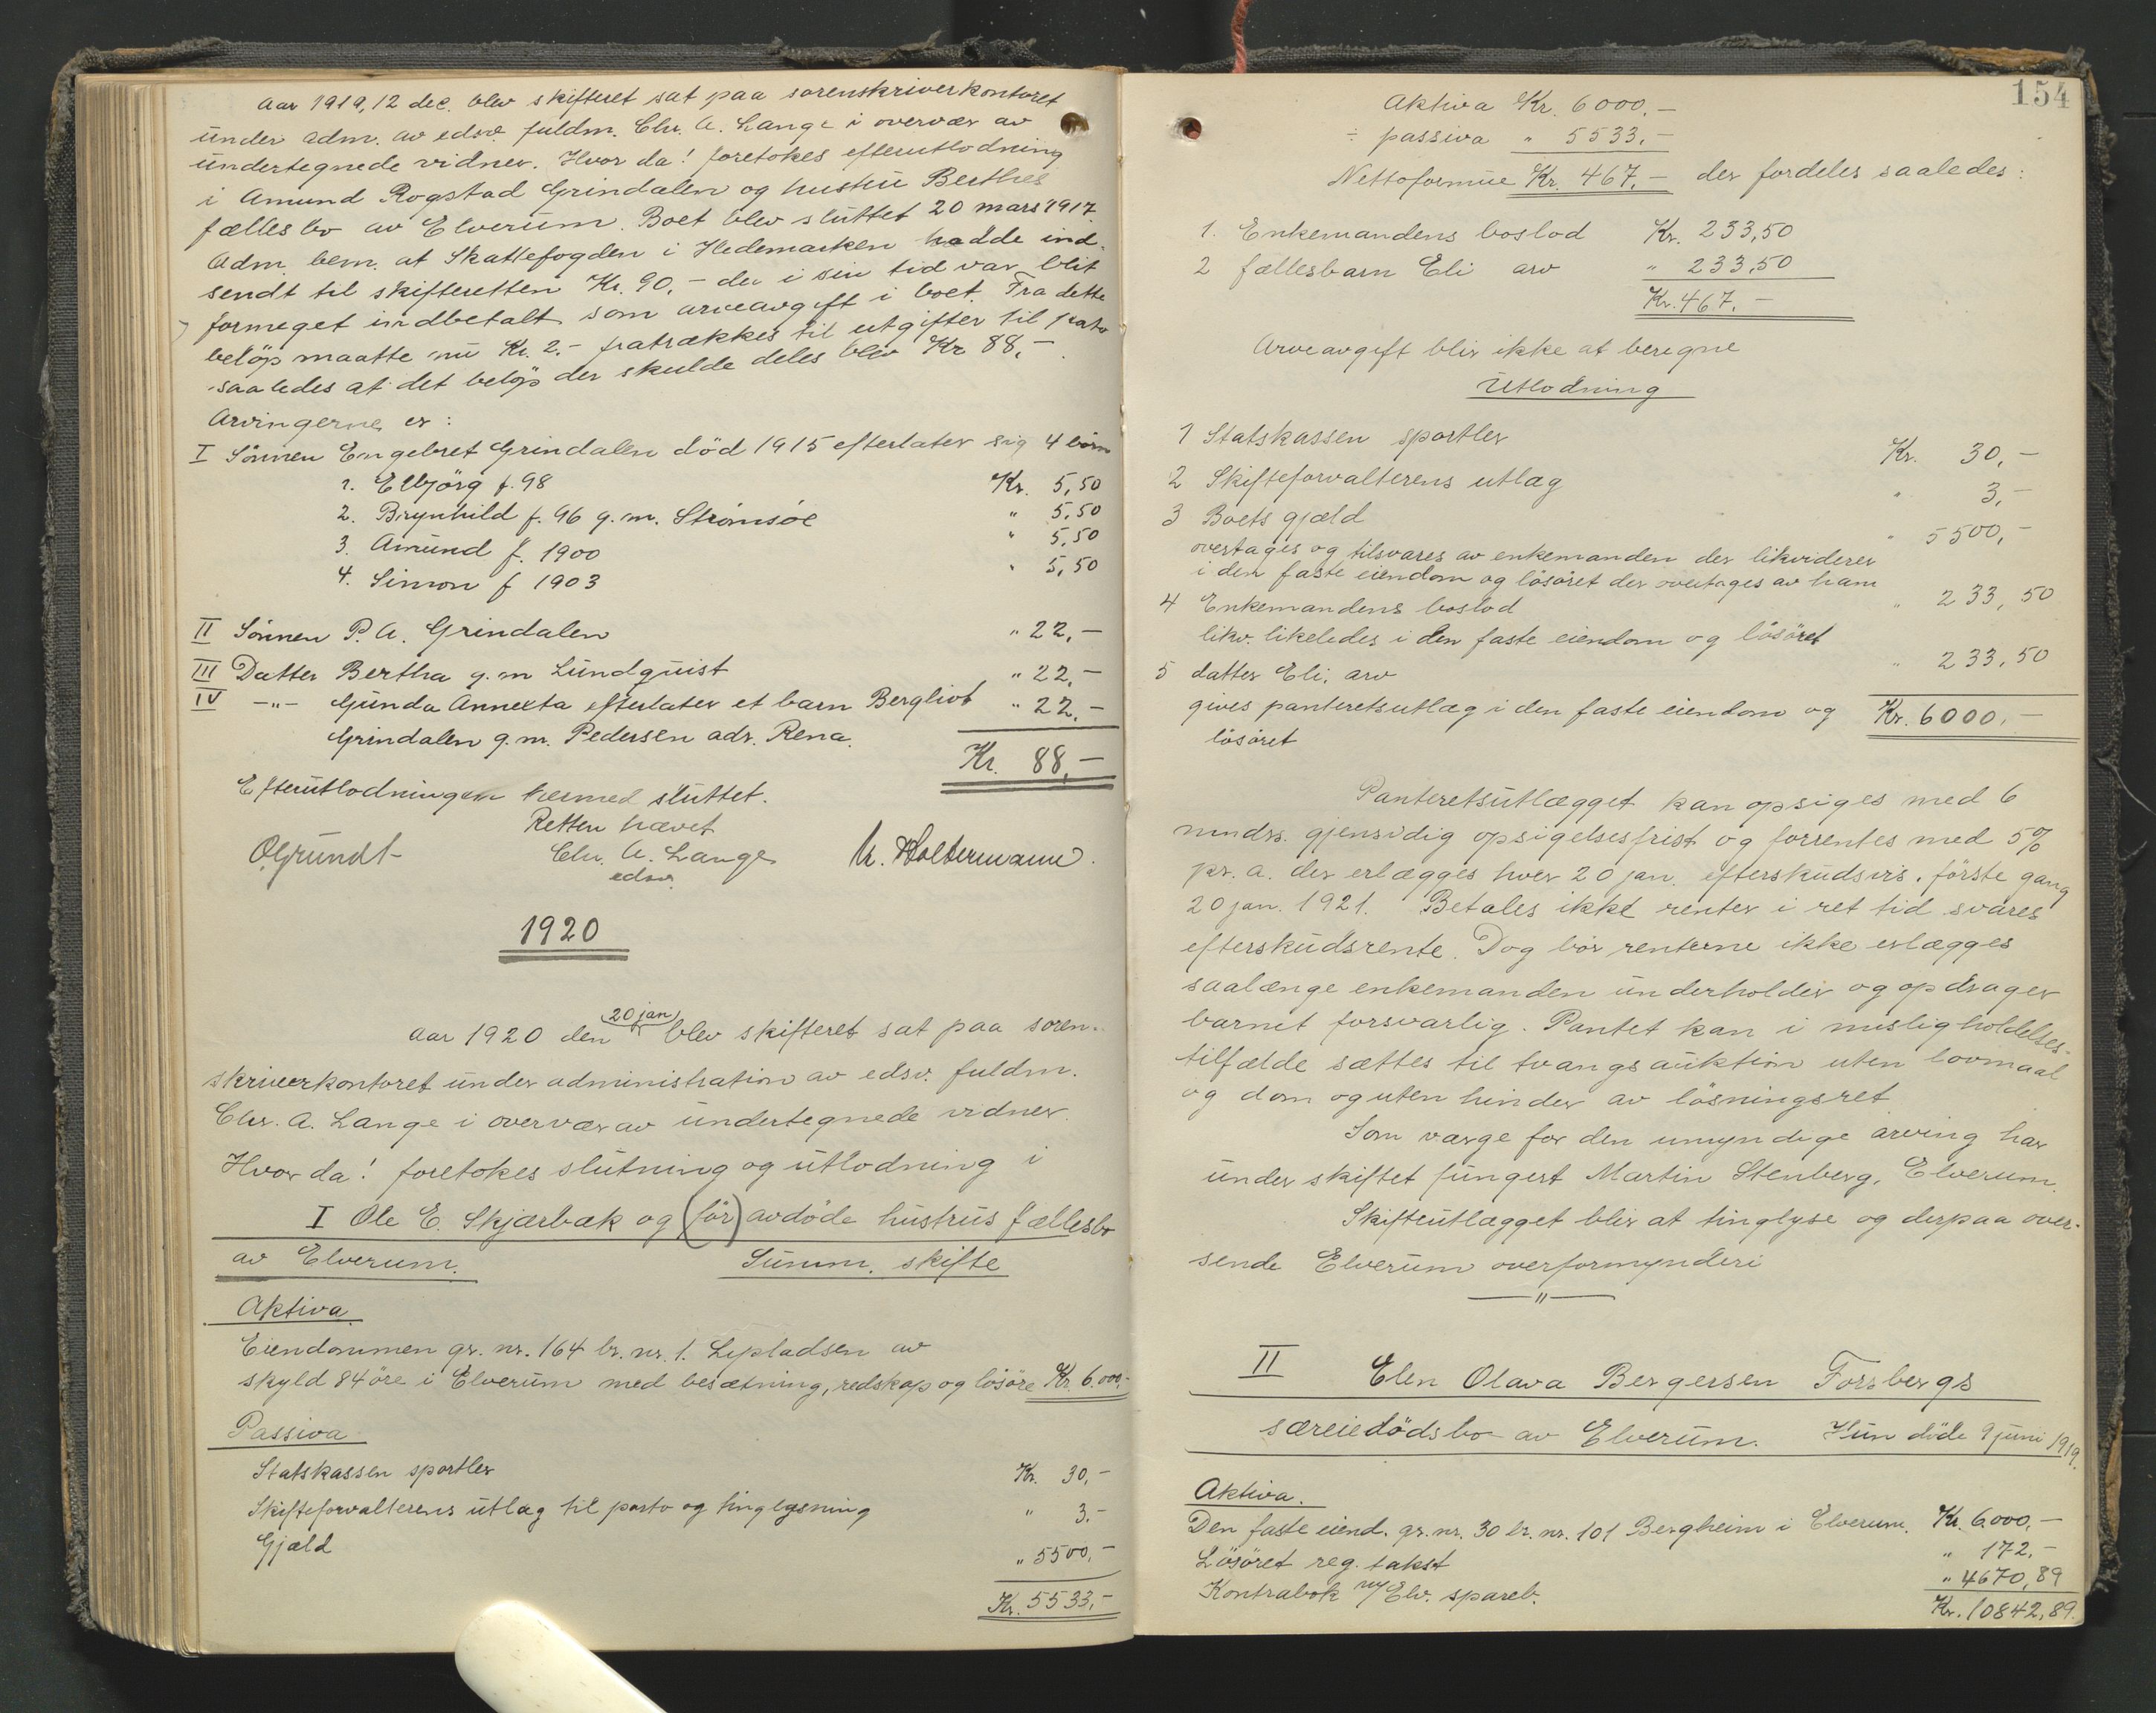 Aar 1919, 12 dec. blev skifteret sat paa sorenskriverkontoret
under adm. av edsv. fuldm. Chr. A. Lange i overvær av
undertegnede vidner. Hvor da! foretokes efterutlodning
i Amund Rogstad Grindalen og hustru Berthes
fællesbo av Elverum. Boet blev sluttet 20 mars 1917.
Adm. bem. at Skattefogden i Hedemarken hadde ind-
sendt til skifteretten Kr. 90,- der i sin tid var blit
formeget indbetalt som arveavgift i boet. Fra dette
beløp maatte nu Kr. 2.- fratrækkes til utgifter til porto
saaledes at det beløp der skulde deles blev Kr 88,-.
Arvingerne er:
I Sønnen Engebret Grindalen död 1915 efterlater sig 4 børn
1. Elbjörg f. 98 Kr. 5,50
2. Brynhild f. 96 g.m. Strømsöe " 5,50
3. Amund f. 1900 " 5,50
4. Simon f 1903 " 5,50
II Sönnen P. A. Grindalen " 22,-
III Datter Bertha g.m Lundquist " 22,-
IV -"- Gunda Annexta efterlater et barn Bergliot " 22,-
Grindalen g.m. Pedersen adr. Rena.
Kr. 88,-
Efterutlodningen hermed sluttet.
Retten hævet
OGrundt Chr. A. Lange K. Woltermann.
edsv.
1920
Aar 1920 den 20 jan blev skifteret sat paa soren-
skriverkontoret under administration av edsv. fuldm.
Chr. A. Lange i overvær av undertegnede vidner.
Hvor da! foretokes slutning og utlodning i
I Ole E. Skjærbæk og (før) avdöde hustrus fællesbo
av Elverum. Summ. skifte
Aktiva.
Eiendommen gr. nr. 164 br. nr. 1. Lepladsen av
skyld 84 öre i Elverum med besætning, redskap og lösöre Kr. 6.000,-
Passiva
Statskassen sportler Kr. 30,-
Skifteforvalterens utlæg til porto og tinglysning " 3.-
Gjæld " 5500,-
Kr. 5533,-
154
Aktiva Kr. 6000,-
÷ passiva " 5533,-
Nettoformue Kr. 467,- der fordeles saaledes:
1. Enkemandens boslod Kr. 233,50
2 fællesbarn Eli arv " 233,50
Kr. 467,-
Arveavgift blir ikke at beregne
Utlodning
1 Statskassen sportler Kr. 30,-
2 Skifteforvalterens utlæg " 3,-
3 Boets gjæld " 5500,-
overtages og tilsvares av enkemanden der likviderer
i den faste eiendom og lösöret der overtages av ham
4 Enkemandens boslod " 233,50
likv. likeledes i den faste eiendom og lösöret
5 datter Eli, arv " 233,50
gives panteretsutlæg i den faste eiendom og Kr. 6000,-
lösöret
Panteretsutlægget kan opsiges med 6
mndrs. gjensidig opsigelsesfrist og forrentes med 5%
pr. a. der erlægges hver 20 jan. efterskudsvis, förste gang
20 jan. 1921. Betales ikke renter i ret tid svares
efterskudsrente. Dog bör renterne ikke erlægges
saalænge enkemanden underholder og opdrager
barnet forsvarlig. Pantet kan i misligholdelses-
tilfælde sættes til tvangsauktion uten lovmaal
og dom og uten hinder av lösningsret
Som værge for den umyndige arving har
under skiftet fungert Martin Stenberg, Elverum.
Skifteutlægget blir at tinglyse og derpaa over-
sende Elverum overformynderi
—"—
II Elen Olava Bergersen Forsbergs
særeiedödsbo av Elverum. Hun döde 9 juni 1919.
Aktiva.
Den faste eiend. gr. nr. 30 br. nr. 101 Bergheim i Elverum. Kr. 6000,-
Lösöret reg. takst " 172,-
Kontrabok m/ Elv. spareb. " 4670,89
Kr. 10842,89.